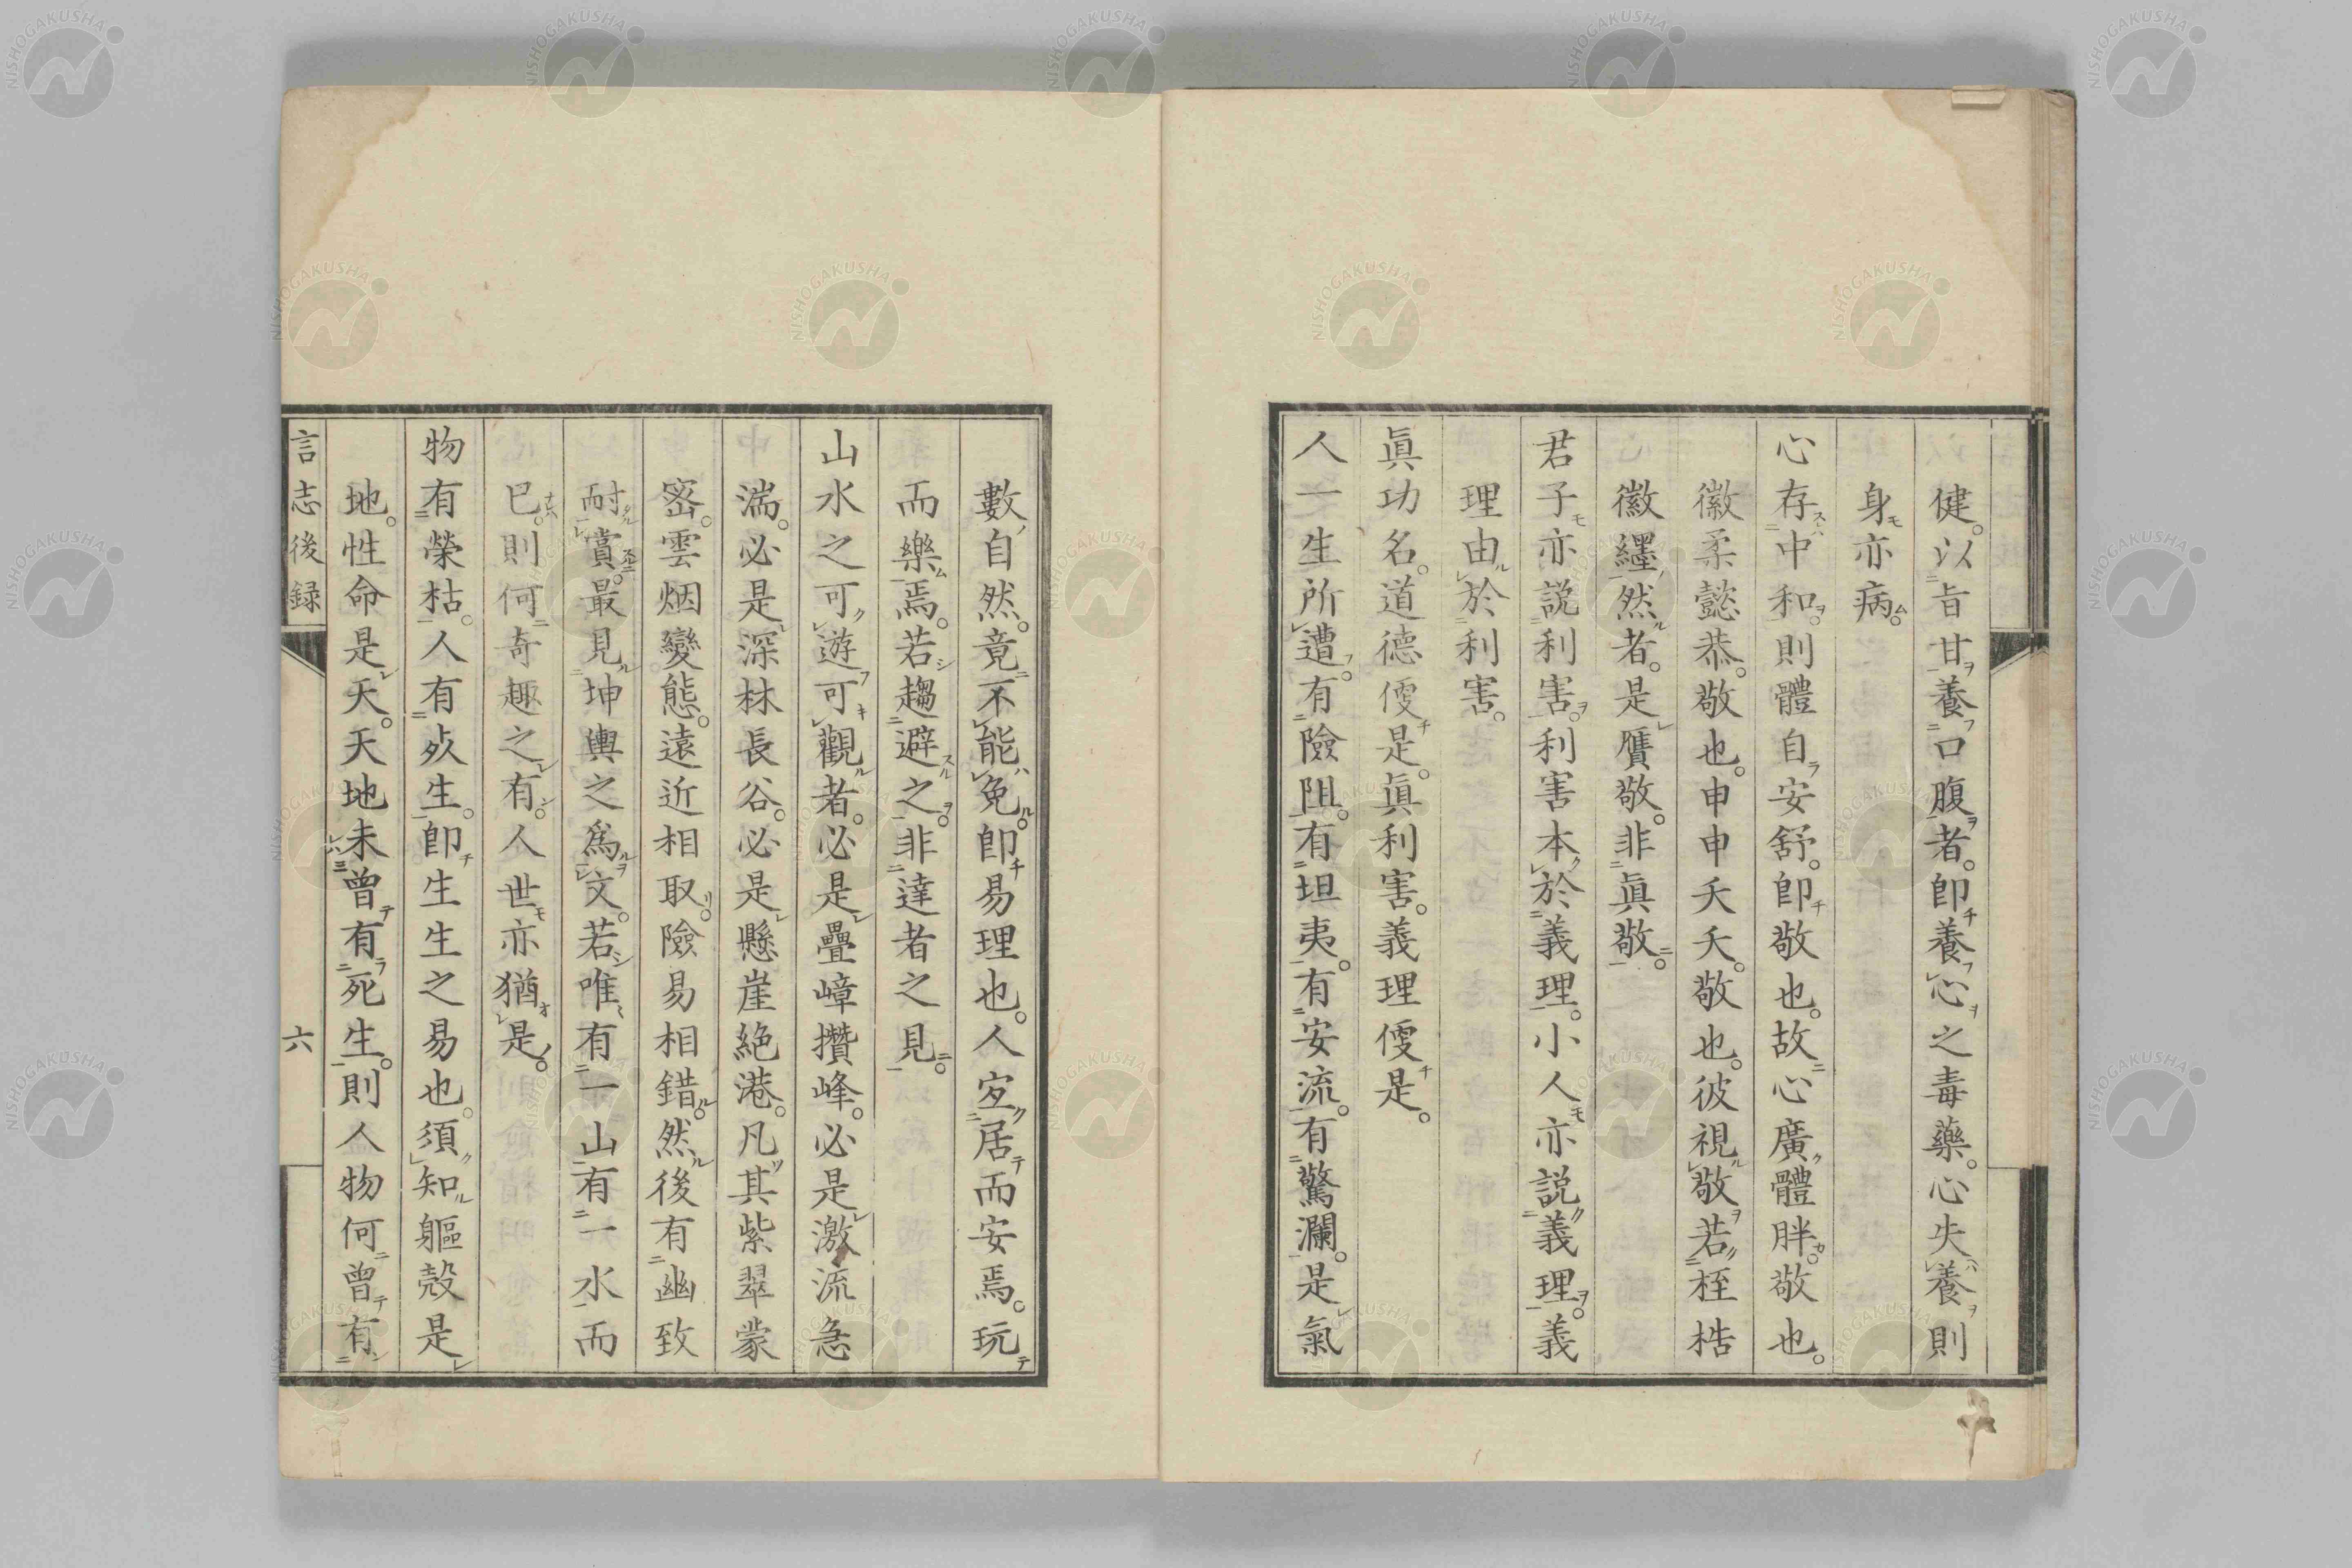 健。以旨甘養口腹者。即養心之毒藥。心失養則
身亦病。
心存中和。則體自安舒。即敬也。故心廣體胖。敬也。
徽柔懿恭。敬也。申申夭夭。敬也。彼視敬若桎梏
徽纆然者。是贋敬。非眞敬。
君子亦説利害。利害本於義理。小人亦説義理。義
理由於利害。
眞功名。道德便是。眞利害。義理便是。
人一生所遭。有險阻。有坦夷。有安流。有驚瀾。是氣
數自然。竟不能免。即易理也。人宜居而安焉。玩
而樂焉。若趨避之。非達者之見。
山水之可遊可觀者。必是疊嶂攢峰。必是激流急
湍。必是深林長谷。必是懸崖絶港。凡其紫翠蒙
密。雲烟變態。遠近相取。險易相錯。然後有幽致
耐賞。最見坤輿之爲文。若唯有一山有一水而
已。則何奇趣之有。人世亦猶是。
物有榮枯。人有死生。即生生之易也。須知軀殻是
地。性命是天。天地未曾有死生。則人物何曾有
言志後録
六
NISHOGAKUSHA